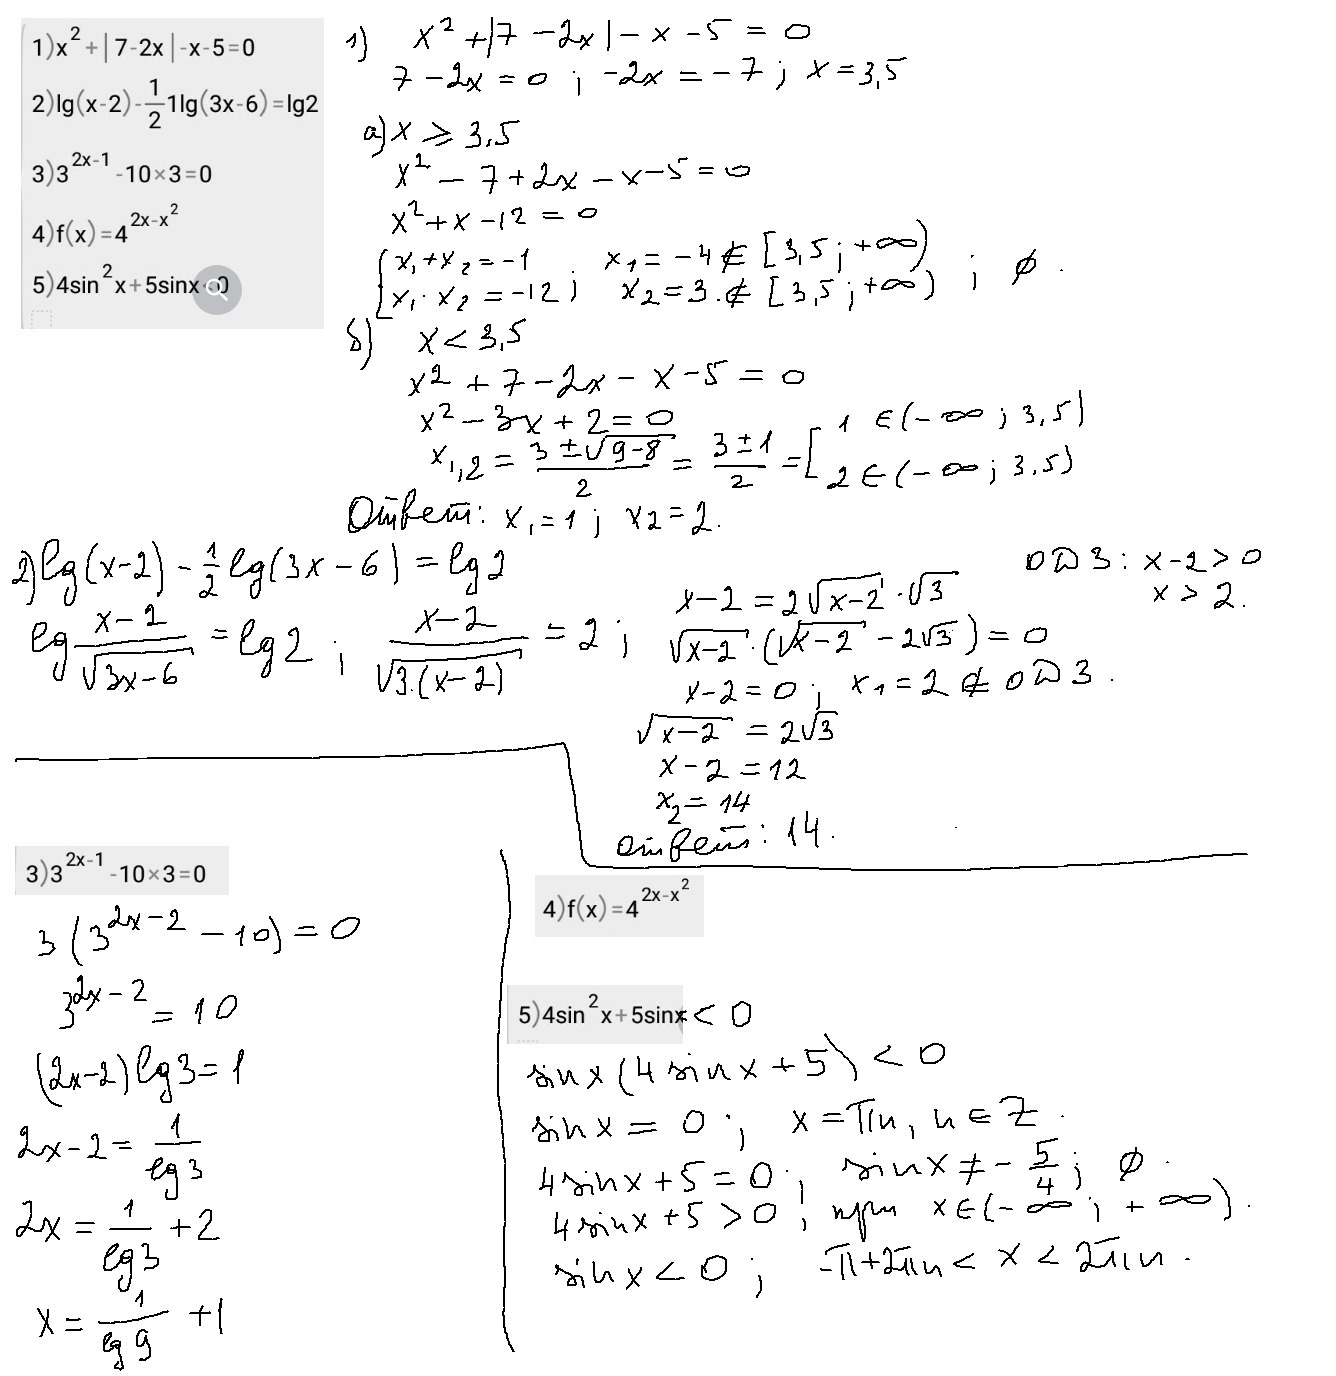 1)x²+|7-2x|-x-5=0
2)lg(x-2)-1/2 1lg(3x-6)=lg2
3)3^(2x-1)-10×3=0
4)f(x)=4^(2x-x²)
5)4sin²x+5sinx 0
1) x² + |7 - 2x| - x - 5 = 0
7 - 2x = 0 ; -2x = -7 ; x = 3,5
а) x ⩾ 3,5
x² - 7 + 2x - x - 5 = 0
x² + x - 12 = 0
{ x₁ + x₂ = -1   x₁ = -4 ∉ [3,5 ; +∞)
x₁ · x₂ = -12 ;   x₂ = 3 ∉ [3,5 ; +∞) ; ∅ .
б) x < 3,5
x² + 7 - 2x - x - 5 = 0
x² - 3x + 2 = 0
x₁,₂ = (3 ± √(9-8))/2 = (3 ± 1)/2 = [ 1 ∈ (-∞ ; 3,5)
2 ∈ (-∞ ; 3,5)
Ответ: x₁ = 1 ; x₂ = 2.
2) lg(x-2) - 1/2 lg(3x-6) = lg 2
ОДЗ: x - 2 > 0
x > 2.
lg (x-2)/√(3x-6) = lg 2 ; (x-2)/√(3·(x-2)) = 2 ;
x - 2 = 2√(x-2) · √3
√(x-2) · (√(x-2) - 2√3) = 0
x - 2 = 0 ; x₁ = 2 ∉ ОДЗ.
√(x-2) = 2√3
x - 2 = 12
x₂ = 14
Ответ: 14.
3)3^(2x-1)-10×3=0
3 (3^(2x-2) - 10) = 0
3^(2x-2) = 10
(2x-2) lg 3 = 1
2x - 2 = 1/lg 3
2x = 1/lg 3 + 2
x = 1/lg 9 + 1
4)f(x)=4^(2x-x²)
5)4sin²x+5sinx < 0
sin x (4 sin x + 5) < 0
sin x = 0 ; x = πn, n ∈ Z .
4 sin x + 5 = 0 ; sin x ≠ - 5/4 ; ∅ .
4 sin x + 5 > 0 ; при x ∈ (-∞ ; +∞) .
sin x < 0 ; -π + 2πn < x < 2πn .